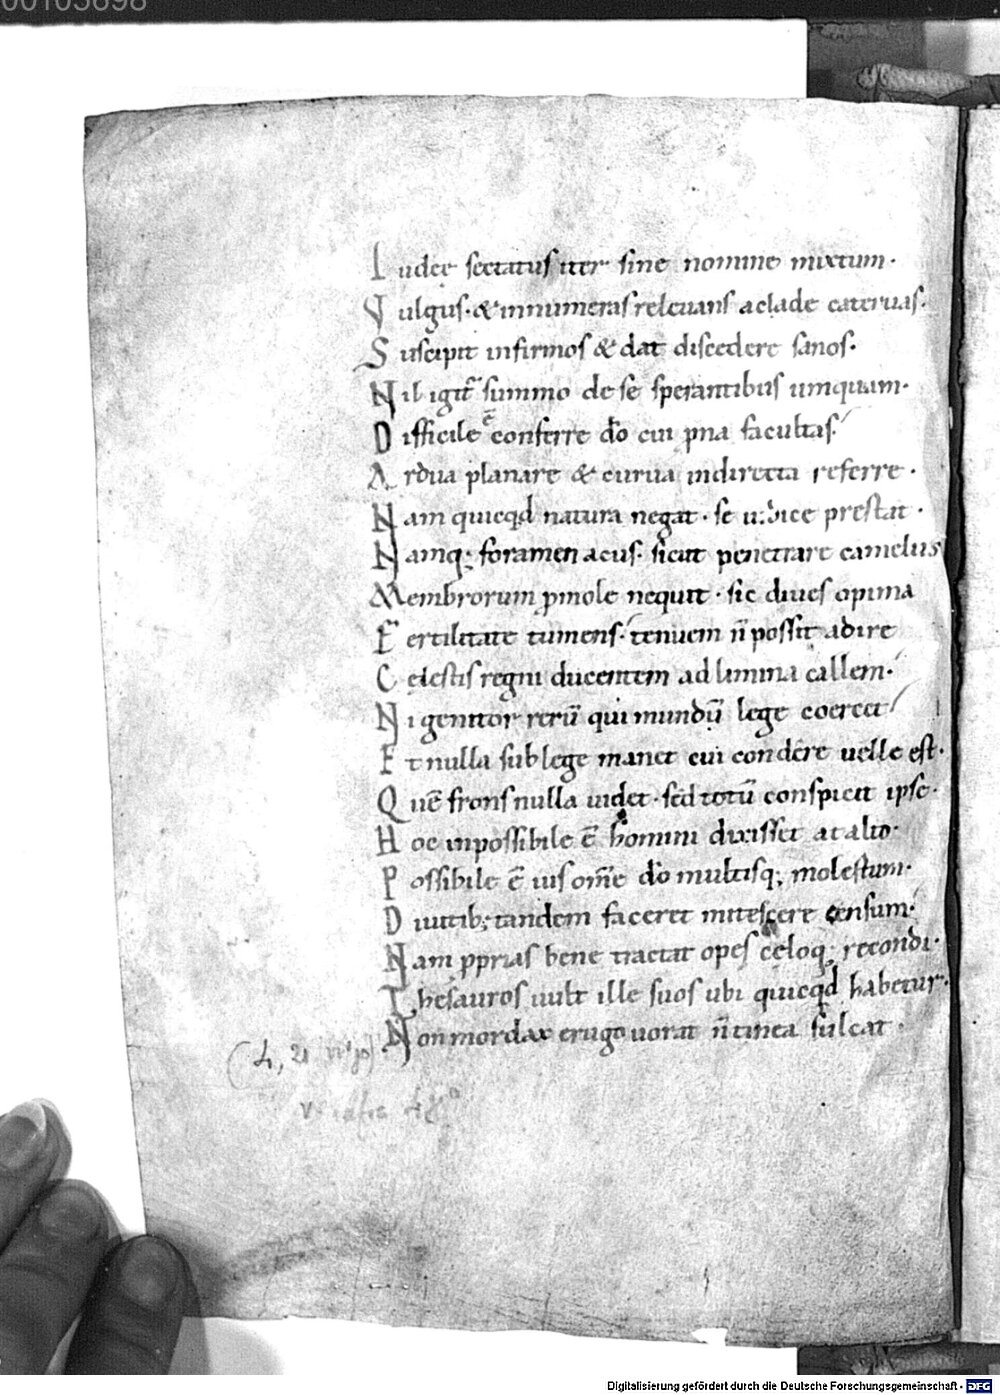 00103698
Iudeę sectatus iter sine nomine mixtum·
Vulgus· & innumeras releuans a clade cateruas·
Suscipit infirmos & dat discedere sanos·
Nil igit̄ summo de se sperantibus umquam·
Difficile ē conferre dō cui p̄na facultas·
Ardua planare & curua indirecta referre·
Nam quicqd natura negat· se iudice prestat·
Namq; foramen acus· sicut penetrare camelus
Membrorum p mole nequit· sic diues opima
Fertilitate tumens· tenuem n̄ possit adire
Cęlestis regni ducentem ad limina callem·
Ni genitor rerū qui mundū lege coercet
Et nulla sub lege manet cui condere uelle est·
Quē frons nulla uidet· sed totū conspicit ipse·
Hoc inpossibile ē homini dixisset at alto·
Possibile ē ius om̄e dō multisq; molestum·
Diuitib; tandem faceret mitescere censum·
Nam pprias bene tractat opes cęloq; recondi·
Thesauros uult ille suos ubi quicqd habetur·
Non mordax erugo uorat n̄ tinea sulcat·
Digitalisierung gefördert durch die Deutsche Forschungsgemeinschaft · DFG